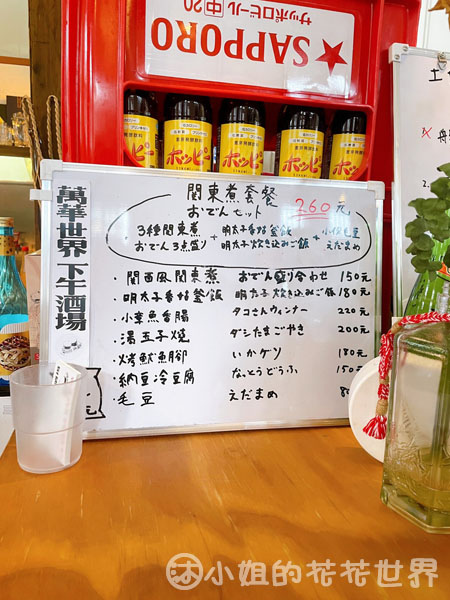 SAPPORO
サッポロビール 中20
ホッピー
ホッピー
ホッピー
ホッピー
萬華世界 下午酒場
関東煮套餐
おでんセット 260元
3種関東煮 + 明太子香

釜飯 + 小份毛豆
おでん3点盛り 明太子炊き込みご飯 えだまめ
・関西風関東煮 おでん盛り合わせ 150元
・明太子香 釜飯 明太子炊き込みご飯 180元
・小章魚香腸 タコさんウィンナー 220元
・湯玉子焼 ダシたまごやき 200元
・烤魷魚腳 いかゲソ 180元
・納豆冷豆腐 なっとうどうふ 150元
・毛豆 えだまめ
小姐的花花世界